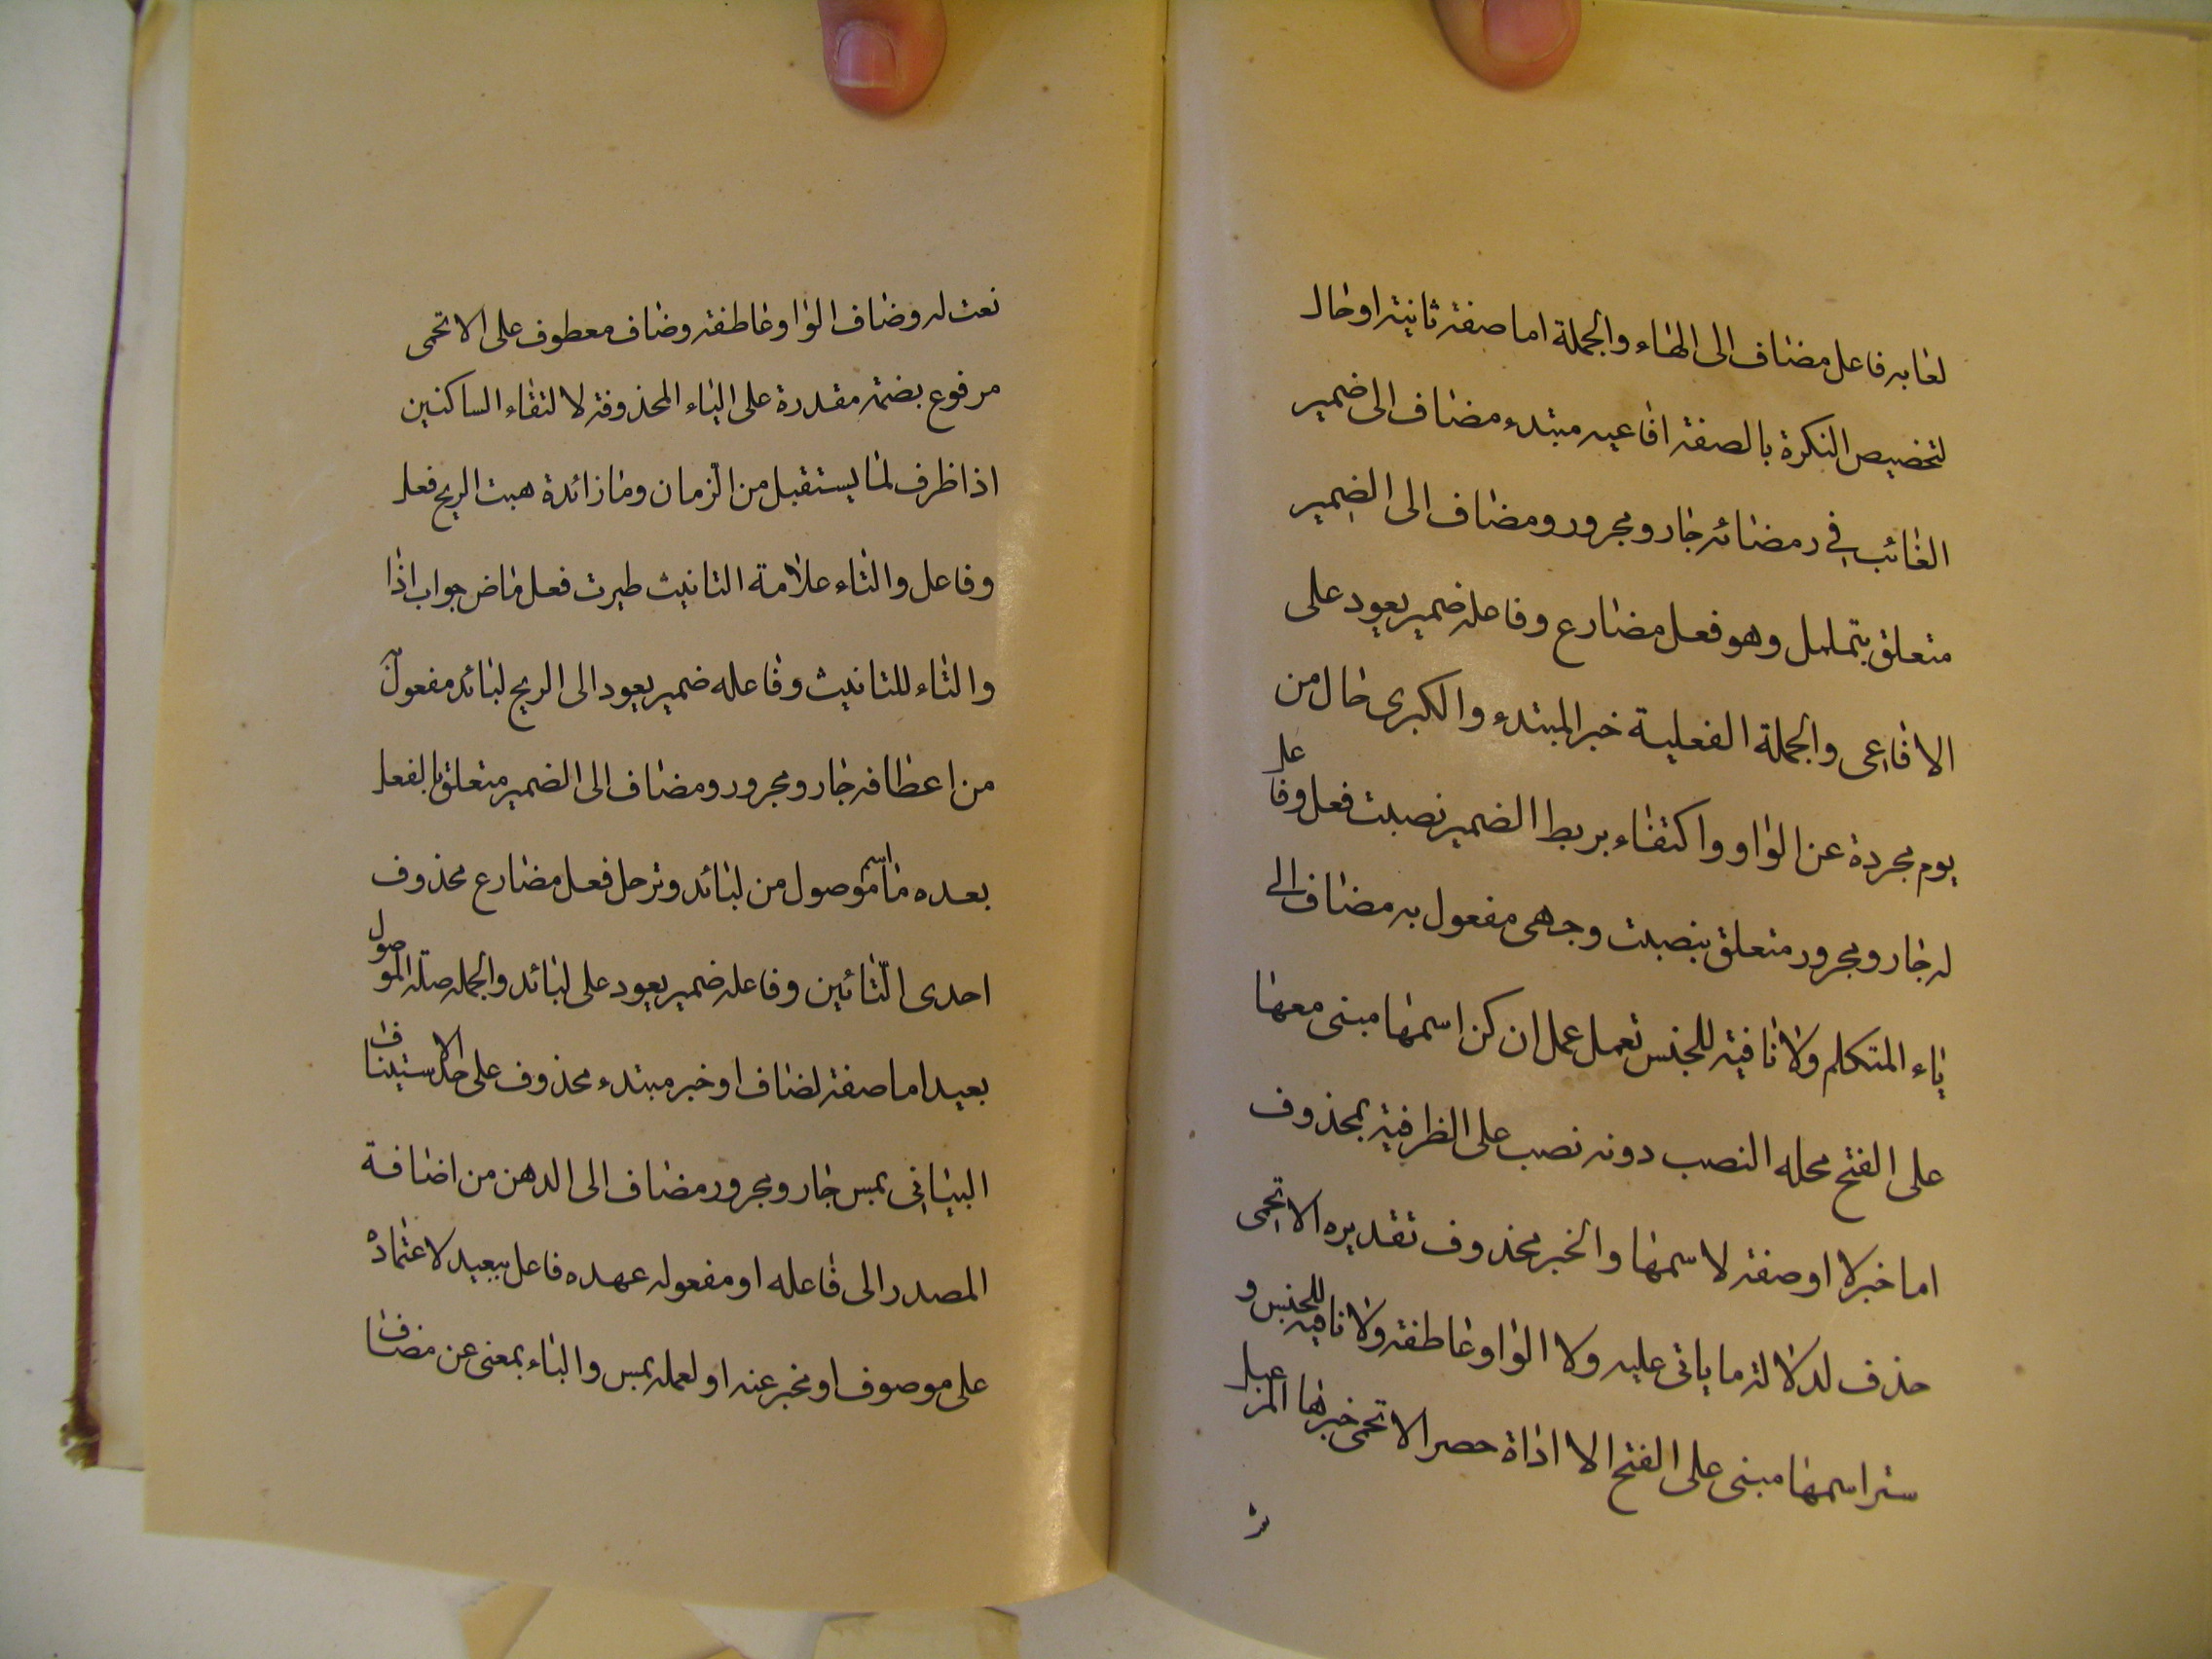 لعابه فاعل مضاف الى الهاء والجملة اما صفة ثانية او حال
لتخصيص النكرة بالصفة افاعيه مبتدء مضاف الى ضمير
الغائب في رمضائه جار ومجرور ومضاف الى الضمير
متعلق بتململ وهو فعل مضارع وفاعله ضمير يعود على
الافاعى والجملة الفعلية خبر المبتدء والكبرى حال من
يوم مجردة عن الواو واكتفاء بربط الضمير نصبت فعل وفاعل
له جار ومجرور متعلق بنصبت وجهى مفعول به مضاف الى
ياء المتكلم ولا نافية للجنس تعمل عمل ان كن اسمها مبنى معها
على الفتح محله النصب دونه نصب على الظرفية بمحذوف
اما خبر لا او صفة لاسمها والخبر محذوف تقديره الاتحمى
حذف لدلالة ما ياتى عليه ولا الواو عاطفة ولا نافية للجنس و
ستر اسمها مبنى على الفتح الا اداة حصر الاتحمى خبرها المرعبل
نعت له وضاف الواو عاطفة وضاف معطوف على الاتحمى
مرفوع بضمة مقدرة على الياء المحذوفة لالتقاء الساكنين
اذا ظرف لما يستقبل من الزمان وما زائدة هبت الريح فعل
وفاعل والتاء علامة التانيث طيرت فعل ماض جواب اذا
والتاء للتانيث وفاعله ضمير يعود الى الريح لبائد مفعول به
من اعطافه جار ومجرور ومضاف الى الضمير متعلق بالفعل
بعده ما اسم موصول من لبائد وترحل فعل مضارع محذوف
احدى التائين وفاعله ضمير يعود على لبائد والجملة صلة الموصول
بعيد اما صفة لضاف او خبر مبتدء محذوف على حد الاستيناف
البيانى بمس جار ومجرور مضاف الى الدهن من اضافة
المصدر الى فاعله او مفعوله عهده فاعل ببعيد لاعتماده
على موصوف او مخبر عنه او لعمله بمس والباء بمعنى عن مضاف